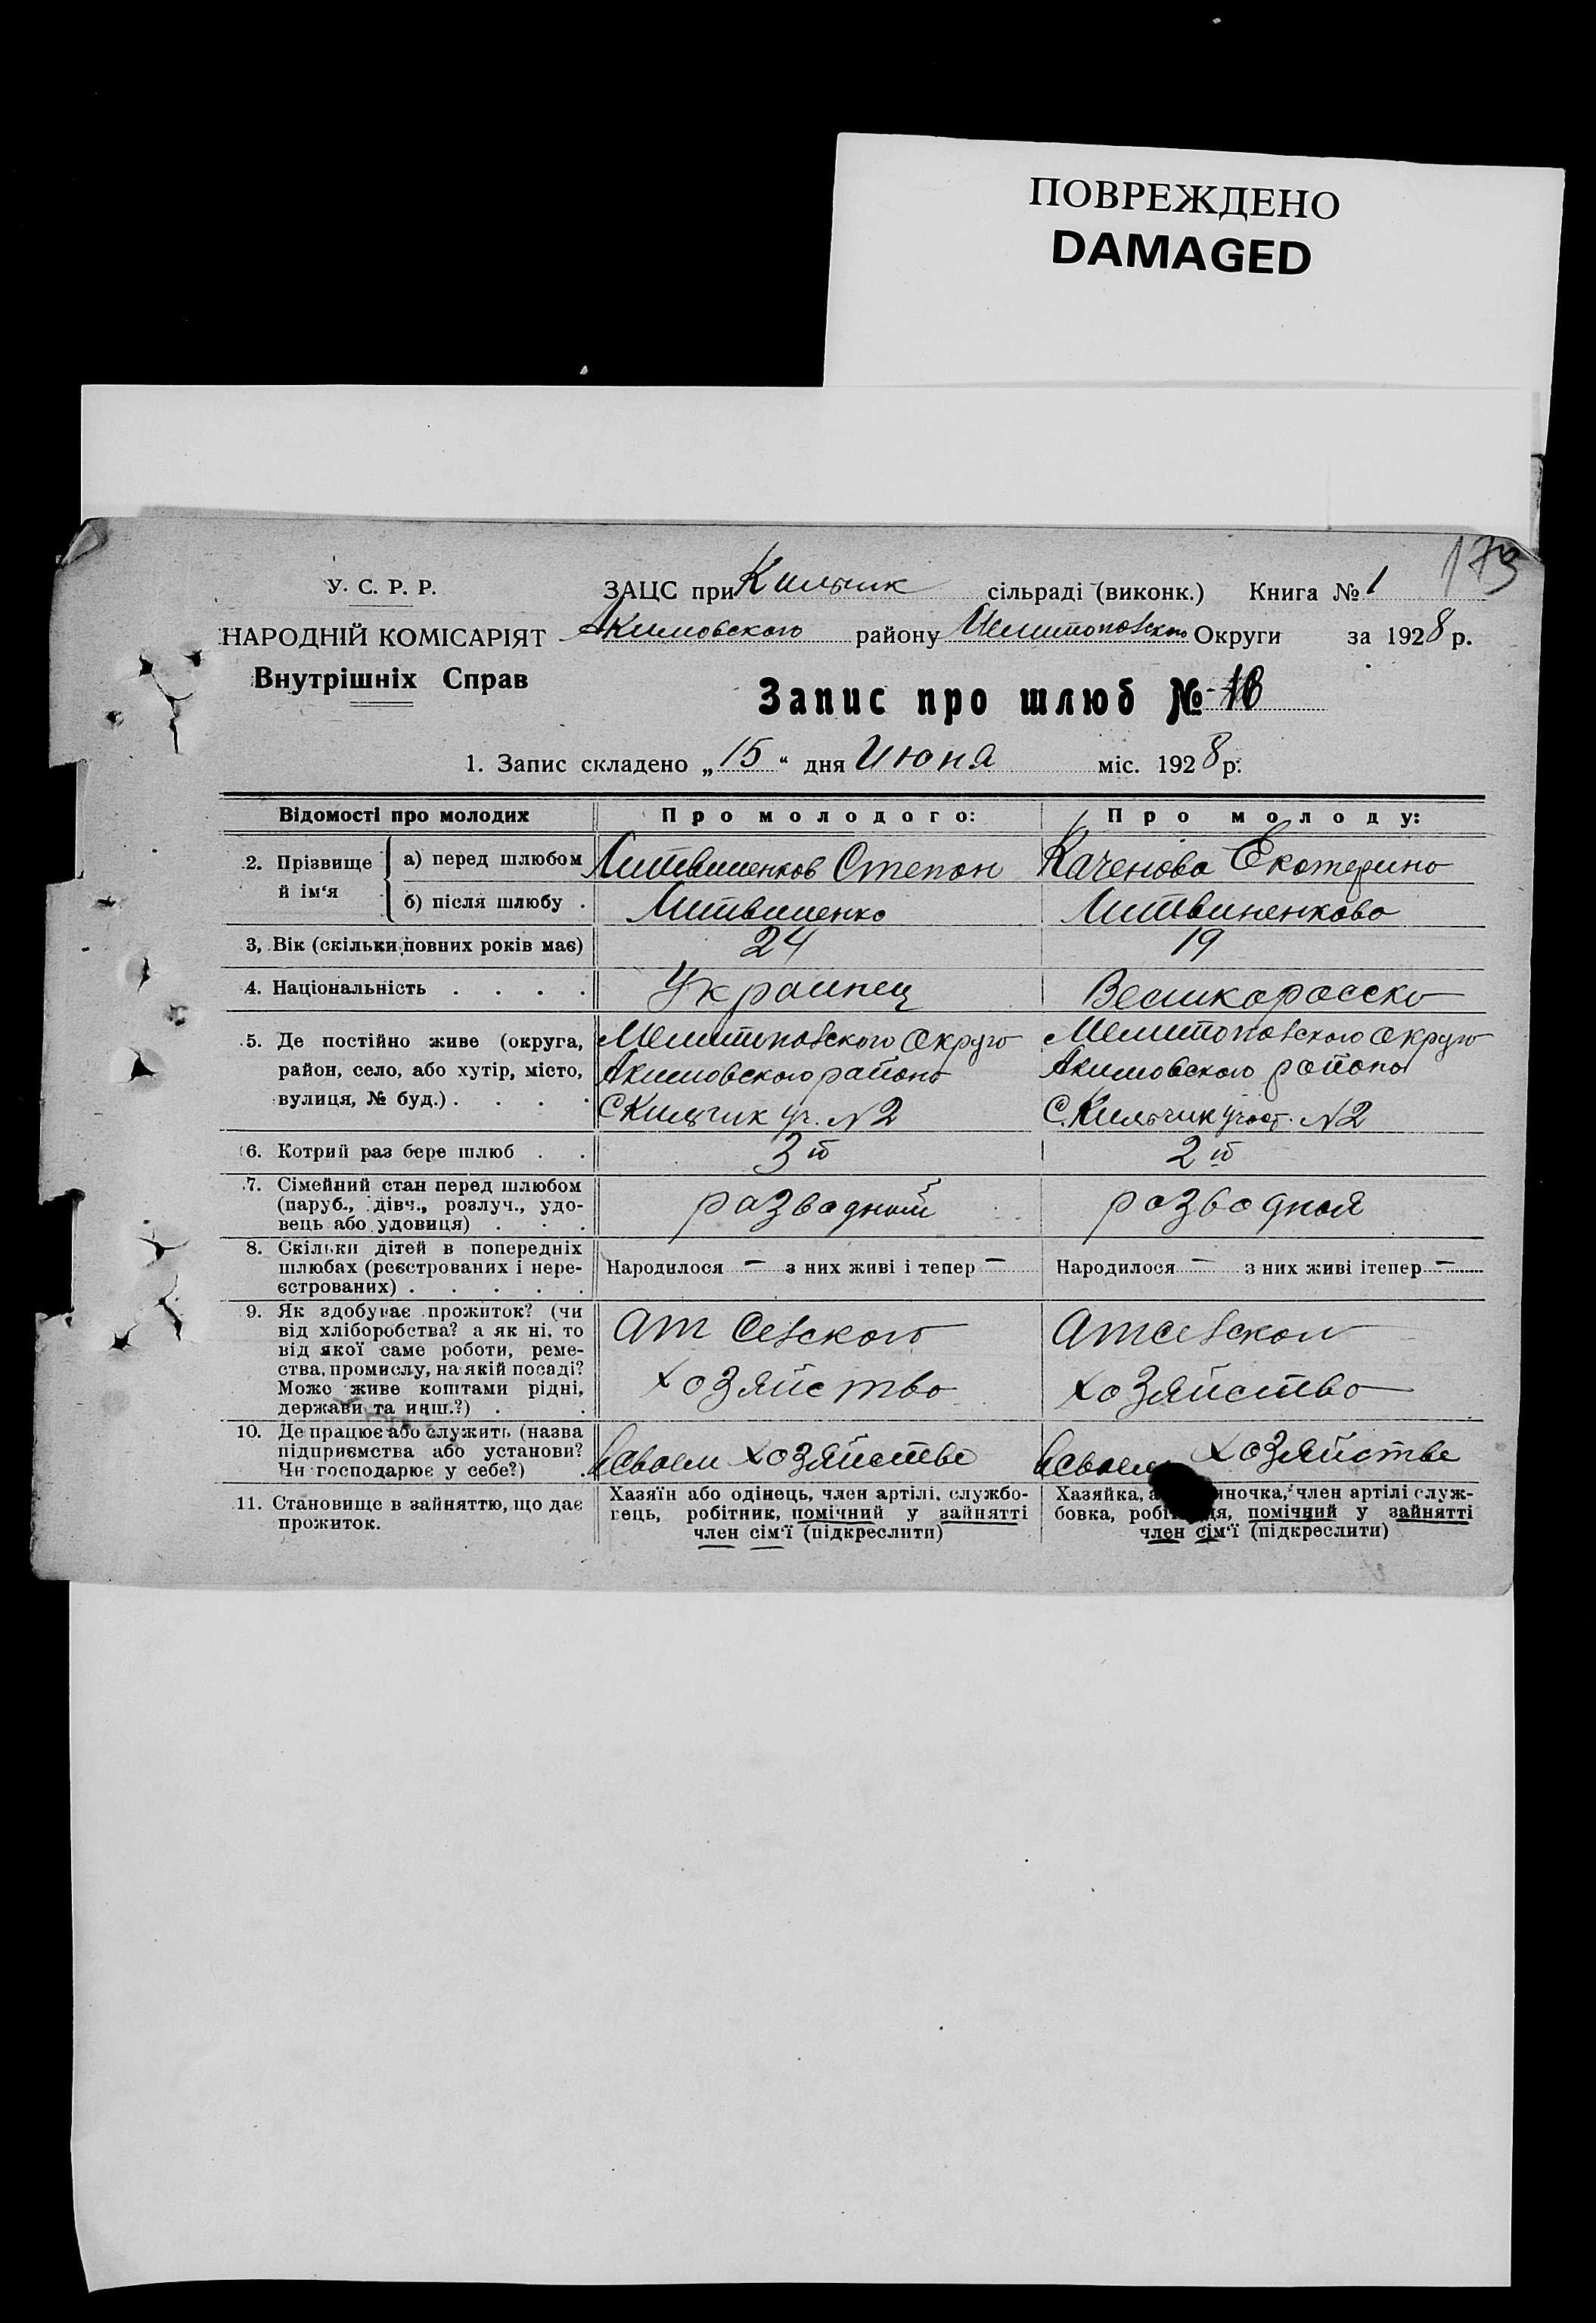 ПОВРЕЖДЕНО
DAMAGED
173
У. С. Р. Р.
НАРОДНІЙ КОМІСАРІЯТ
Внутрішніх Справ
ЗАЦС при Кильчик сільраді (виконк.) Книга № 1
Акимовского району Мелитопольского Округи за 1928 р.
Запис про шлюб №
1. Запис складено „15“ дня Июня міс. 1928 р.
Відомості про молодих Про молодого: Про молоду:
2. Прізвище й ім‘я
а) перед шлюбом Степан Каченова Екатерина
б) після шлюбу . Литвиненкова
3, Вік (скільки повних років має) 24 19
4. Національність . . . . Украинец Великоросска
5. Де постійно живе (округа, Мелитопольского Округа Мелитопольского Округа
район, село, або хутір, місто, Акимовского района Акимовского района
вулиця, № буд.) . . . . С Кильчик уч. N2 С. Кильчик участ. N2
6. Котрий раз бере шлюб . . 3й 2й
7. Сімейний стан перед шлюбом
(паруб., дівч., розлуч., удо- разводний розводная
вець або удовиця) . . .
8. Скільки дітей в попередніх
шлюбах (реєстрованих і нере- Народилося — з них живі і тепер — Народилося — з них живі і тепер —
єстрованих) . . . . .
9. Як здобуває прожиток? (чи
від хліборобства? а як ні, то Ат Сельского Атсельского
від якої саме роботи, реме-
ства, промислу, на якій посаді?
Може живе коштами рідні, хозяйства хозяйства
держави та инш.?) . .
10. Де працює або служить (назва
підприємства або установи? Всвоем хозяйстве Всвоем хозяйстве
Чи господарює у себе?) .
11. Становище в зайняттю, що дає
прожиток.
Хазяїн або одінець, член артілі, службо-
вець, робітник, помічний у зайнятті
член сім‘ї (підкреслити)
Хазяйка, а иночка, член артілі служ-
бовка, робі ця, помічний у зайнятті
член сім‘ї (підкреслити)